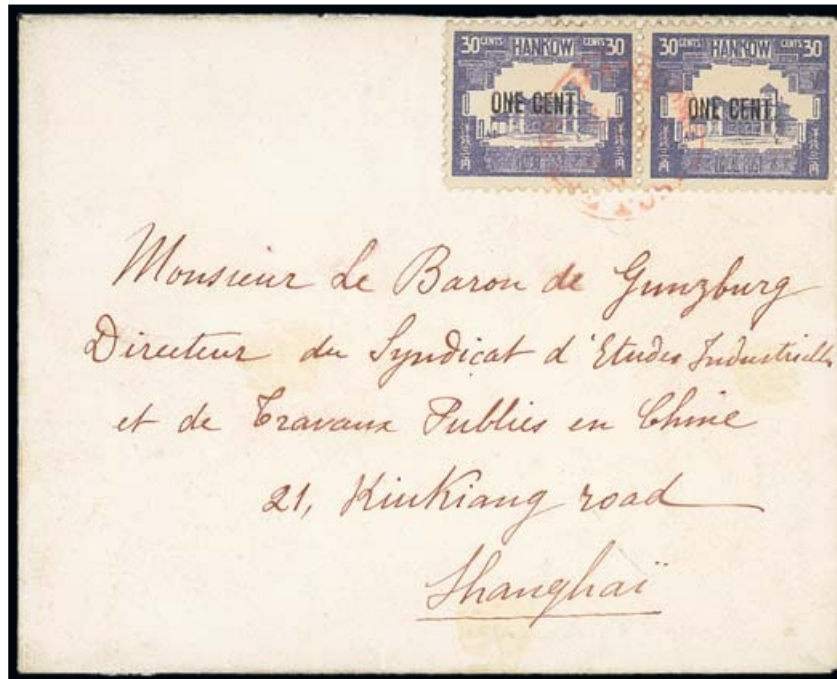 30 CENTS HANKOW CENTS 30
30 CENTS HANKOW CENTS 30
ONE CENT
ONE CENT
LOCAL POST
LOCAL POST
Monsieur Le Baron de Gunzburg
Directeur du Syndicat d'Etudes Industrielles
et de Travaux Publics en Chine
21, KiuKiang road
Shanghaï